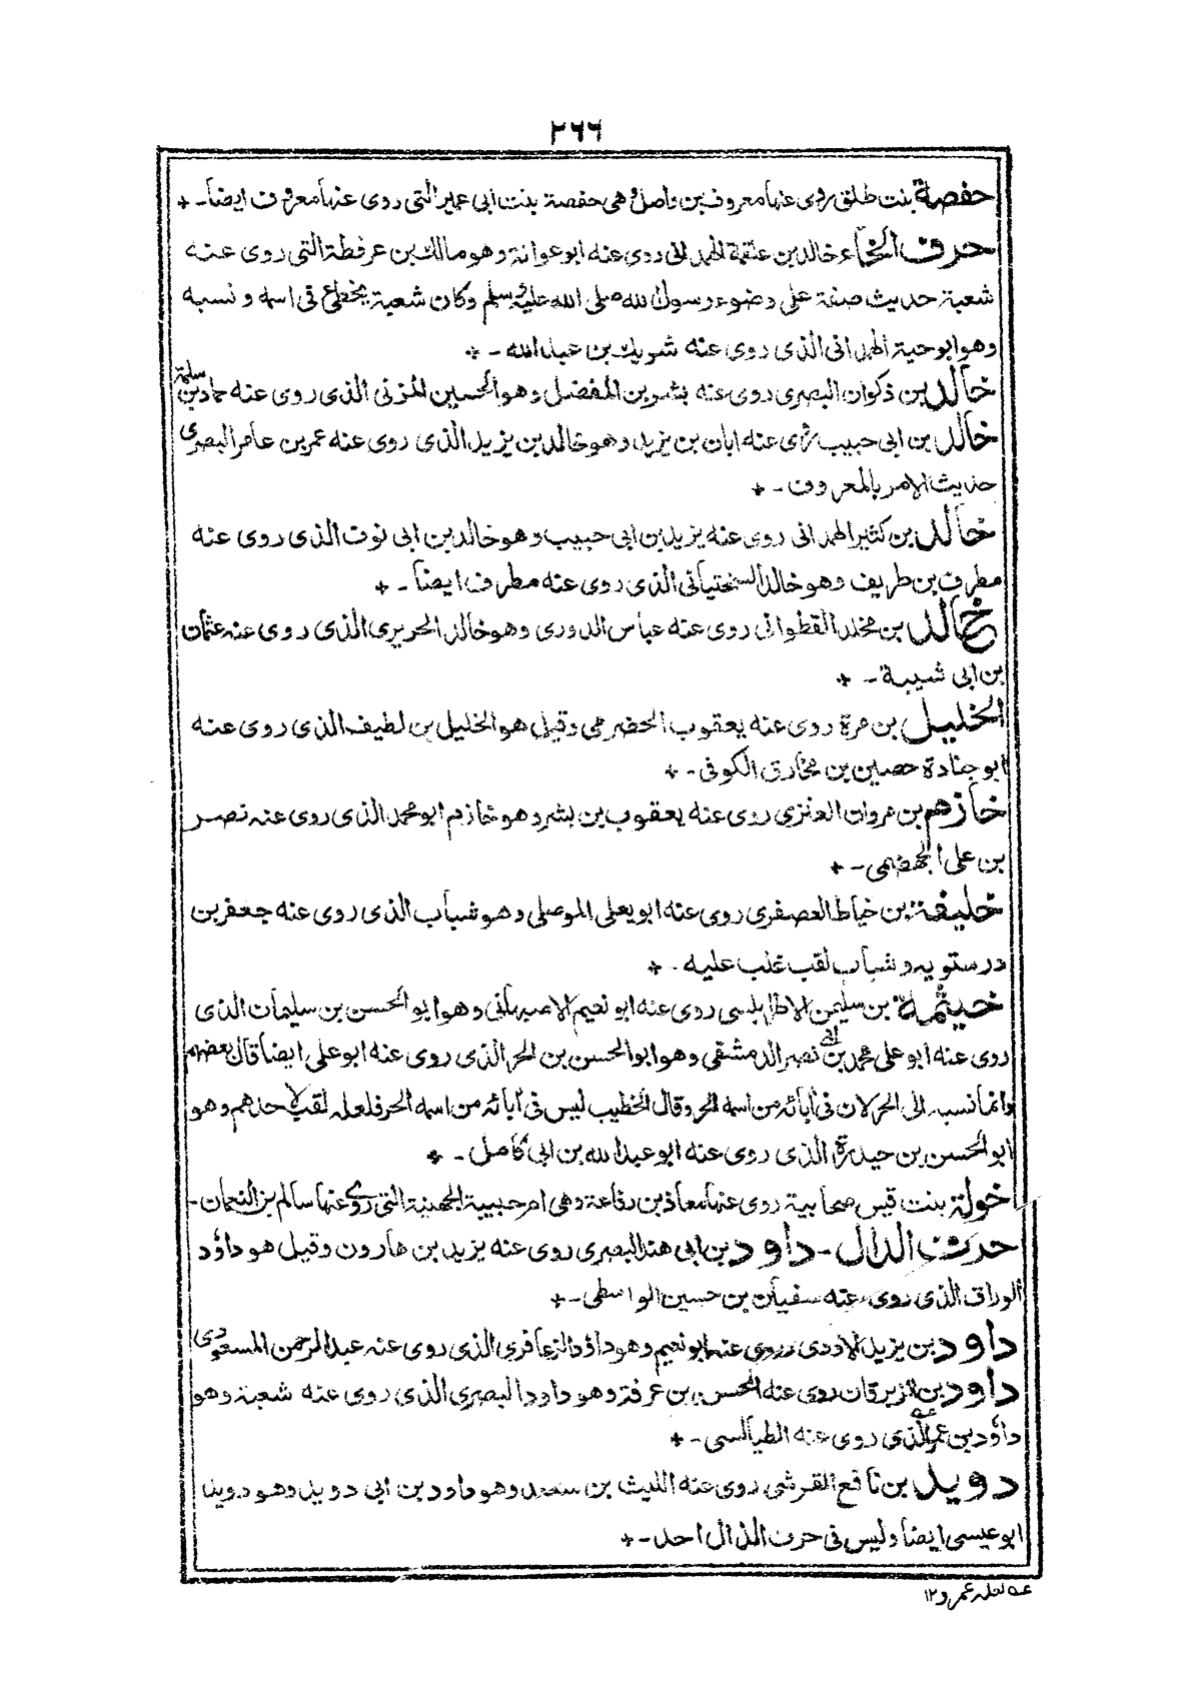 ٢٦٦
حفصة بنت طلق روى عنها معروف بن واصل وهى حفصة بنت ابى عمير التى روى عنها معروف ايضاً ـ +
حرف الخاء خالد بن علقمة الهمدانى روى عنه ابو عوانة وهو مالك بن عرفطة التى روى عنه
شعبة حديث صفة على وضوء رسول الله صلى الله عليه وسلم وكان شعبة يخطئ فى اسمه و نسبه
وهو ابو حية الهمدانى الذى روى عنه شريك بن عبد الله ـ +
خالد بن ذكوان البصرى روى عنه بشر بن المفضل وهو الحسين المزنى الذى روى عنه حماد بن سلمة
خالد بن ابى حبيب روى عنه ابان بن يزيد وهو خالد بن يزيد الذى روى عنه عمر بن عامر البصرى
حديث الامر بالمعروف ـ +
خالد بن كثير الهمدانى روى عنه يزيد بن ابى حبيب وهو خالد بن ابى نوف الذى روى عنه
مطرف بن طريف وهو خالد السختيانى الذى روى عنه مطرف ايضاً ـ +
خالد بن مخلد القطوانى روى عنه عباس الدورى وهو خالد الحريرى الذى روى عنه عثمان
بن ابى شيبة ـ +
الخليل بن مرة روى عنه يعقوب الحضرمى وقيل هو الخليل بن لطيف الذى روى عنه
ابو جنادة حصين بن مخارق الكوفى ـ +
خازم بن مروان العنزى روى عنه يعقوب بن بشر وهو خازم ابو محمد الذى روى عنه نصر
بن على الجهضمى ـ +
خليفة بن خياط العصفرى روى عنه ابو يعلى الموصلى وهو شباب الذى روى عنه جعفر بن
درستويه وشباب لقب غلب عليه ـ +
خيثمة بن سليمن الاطرابلسى روى عنه ابو نعيم الاصبهانى وهو ابو الحسن بن سليمان الذى
روى عنه ابو على محمد بن ابى نصر الدمشقى وهو ابو الحسن بن الحر الذى روى عنه ابو على ايضا قال بعضهم
وانما نسبه الى الحر لان فى آبائه من اسمه الحر وقال الخطيب ليس فى آبائه من اسمه الحر فلعله لقب لاحدهم وهو
ابو الحسن بن حيدرة الذى روى عنه ابو عبد الله بن ابى كامل ـ +
خولة بنت قيس صحابية روى عنها معاذ بن رفاعة وهى ام حبيبة الجهنية التى روى عنها سالم بن النعمان ـ
حرف الدال ـ داود بن ابى هند البصرى روى عنه يزيد بن هارون وقيل هو داؤد
الوراق الذى روى عنه سفيان بن حسين الواسطى ـ +
داود بن يزيد الاودى روى عنه ابو نعيم وهو داؤد الزعافرى الذى روى عنه عبد الرحمن المسعودى
داود بن الزبرقان روى عنه الحسن بن عرفة وهو داود البصرى الذى روى عنه شعبة وهو
داؤد بن عمر عه الذى روى عنه الطيالسى ـ +
دويد بن نافع القرشى روى عنه الليث بن سعد وهو داود بن ابى دويد وهو دويد
ابو عيسى ايضا وليس فى حرف الذال احد ـ +
عه لعله عمرو ١٢